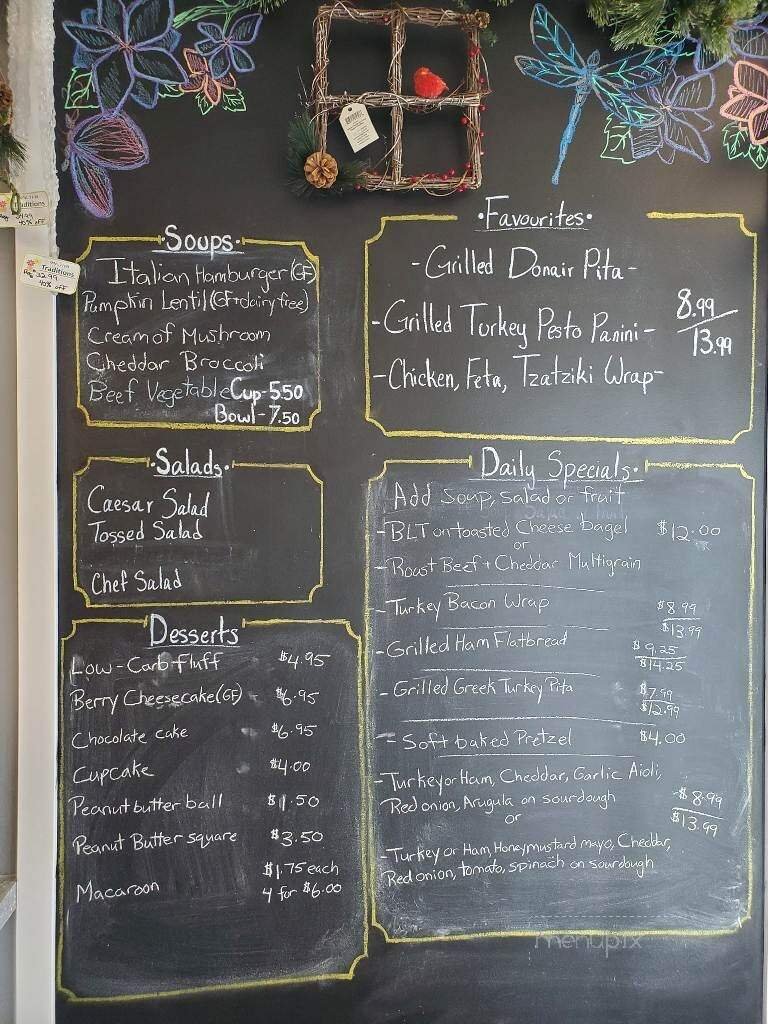 Traditions
40% off
Traditions
Reg 32.99
40% off
·Soups·
Italian Hamburger (GF)
Pumpkin Lentil (GF+dairy free)
Cream of Mushroom
Cheddar Broccoli
Beef Vegetable Cup-5.50
Bowl-7.50
·Salads·
Caesar Salad
Tossed Salad
Chef Salad
Desserts
Low-Carb fluff - $4.95
Berry Cheesecake (GF) - $6.95
Chocolate cake - $6.95
Cupcake $4.00
Peanut butter ball $1.50
Peanut Butter square $3.50
Macaroon $1.75 each
4 for $6.00
·Favourites·
-Grilled Donair Pita-
-Grilled Turkey Pesto Panini- 8.99
13.99
-Chicken, Feta, Tzatziki Wrap-
Daily Specials·
Add soup, salad or fruit
-BLT on toasted Cheese bagel $12.00
or
-Roast Beef + Cheddar Multigrain
-Turkey Bacon Wrap $8.99
$13.99
-Grilled Ham Flatbread $9.25
$14.25
-Grilled Greek Turkey Pita $7.99
$12.99
-Soft baked Pretzel $4.00
-Turkey or Ham, Cheddar, Garlic Aioli,
Red onion, Arugula on sourdough -$8.99
or $13.99
-Turkey or Ham, Honeymustard mayo, Cheddar,
Red onion, tomato, spinach on sourdough
menupix